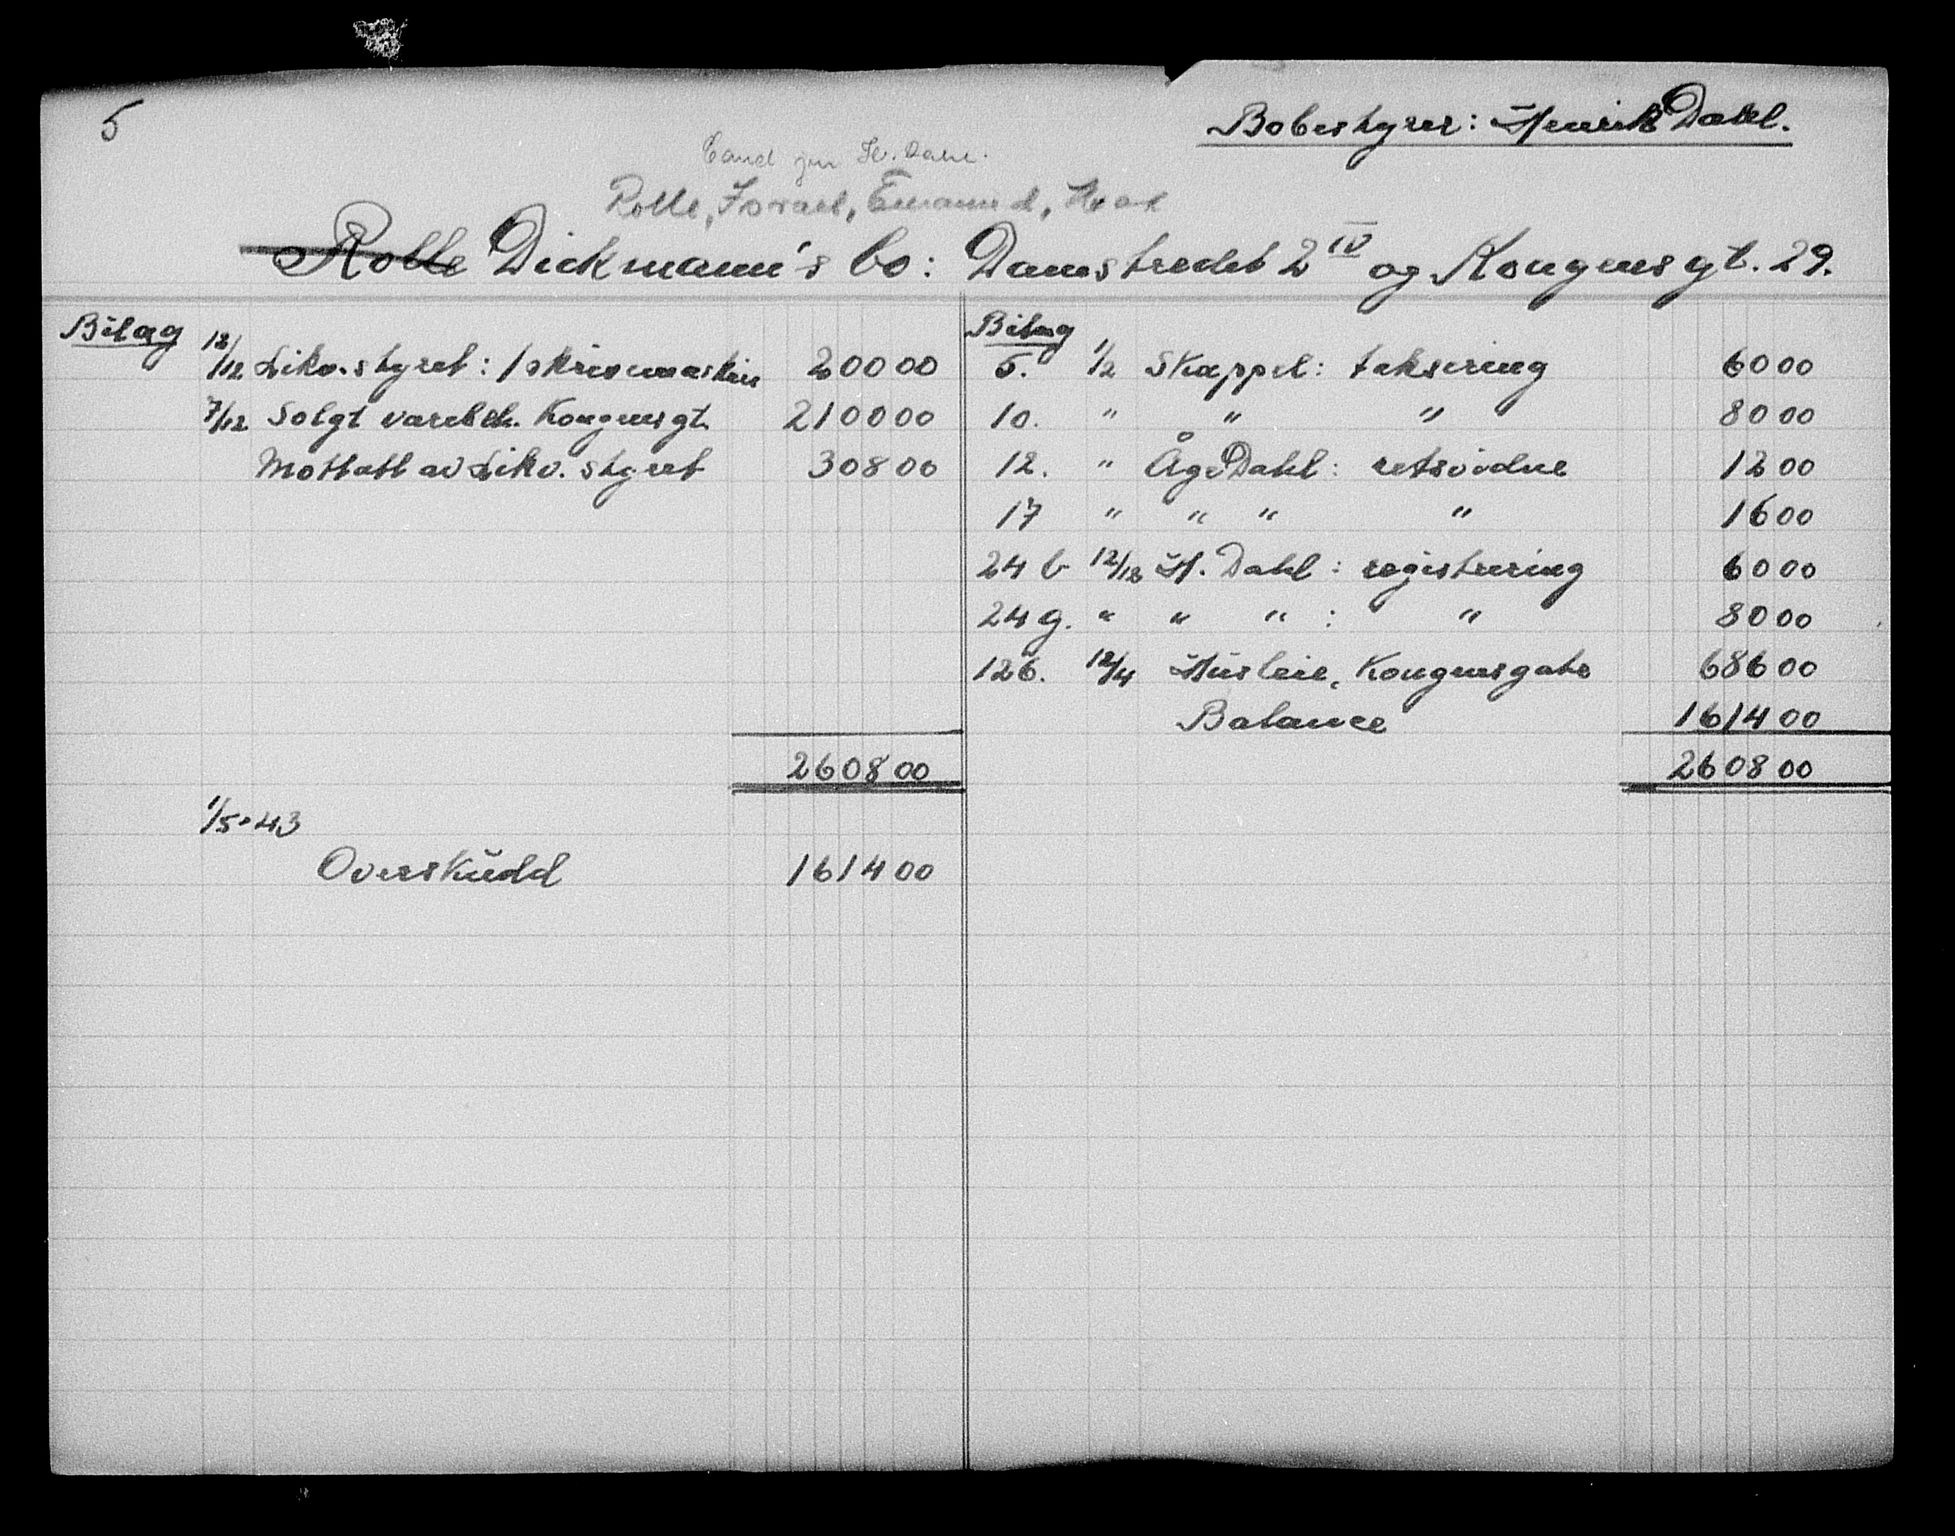 5
Bobestyrer: Henrik Dahl.
Cand jur H. Dahl.
Rolle, Israel, Emanuel,
Rolle Dickmann's bo: Damstredet 2 IV og Kongensgt. 29.
Bilag
12/12 Likv. styret: 1 skrivemaskin 200 00
7/12 Solgt varebeh. Kongensgt. 2100 00
Mottatt av Likv. styret 308 00
2608 00
1/5-43
Overskudd 1614 00
Bilag
5. 1/2 Skappel: taksering 60 00
10. " " " 80 00
12. " Åge Dahl: retsvidne 12 00
17 " " " " 16 00
24 b 12/12 H. Dahl: registrering 60 00
24 g. " " " : " 80 00
126. 12/4 Husleie, Kongensgate 686 00
Balance 1614 00
2608 00